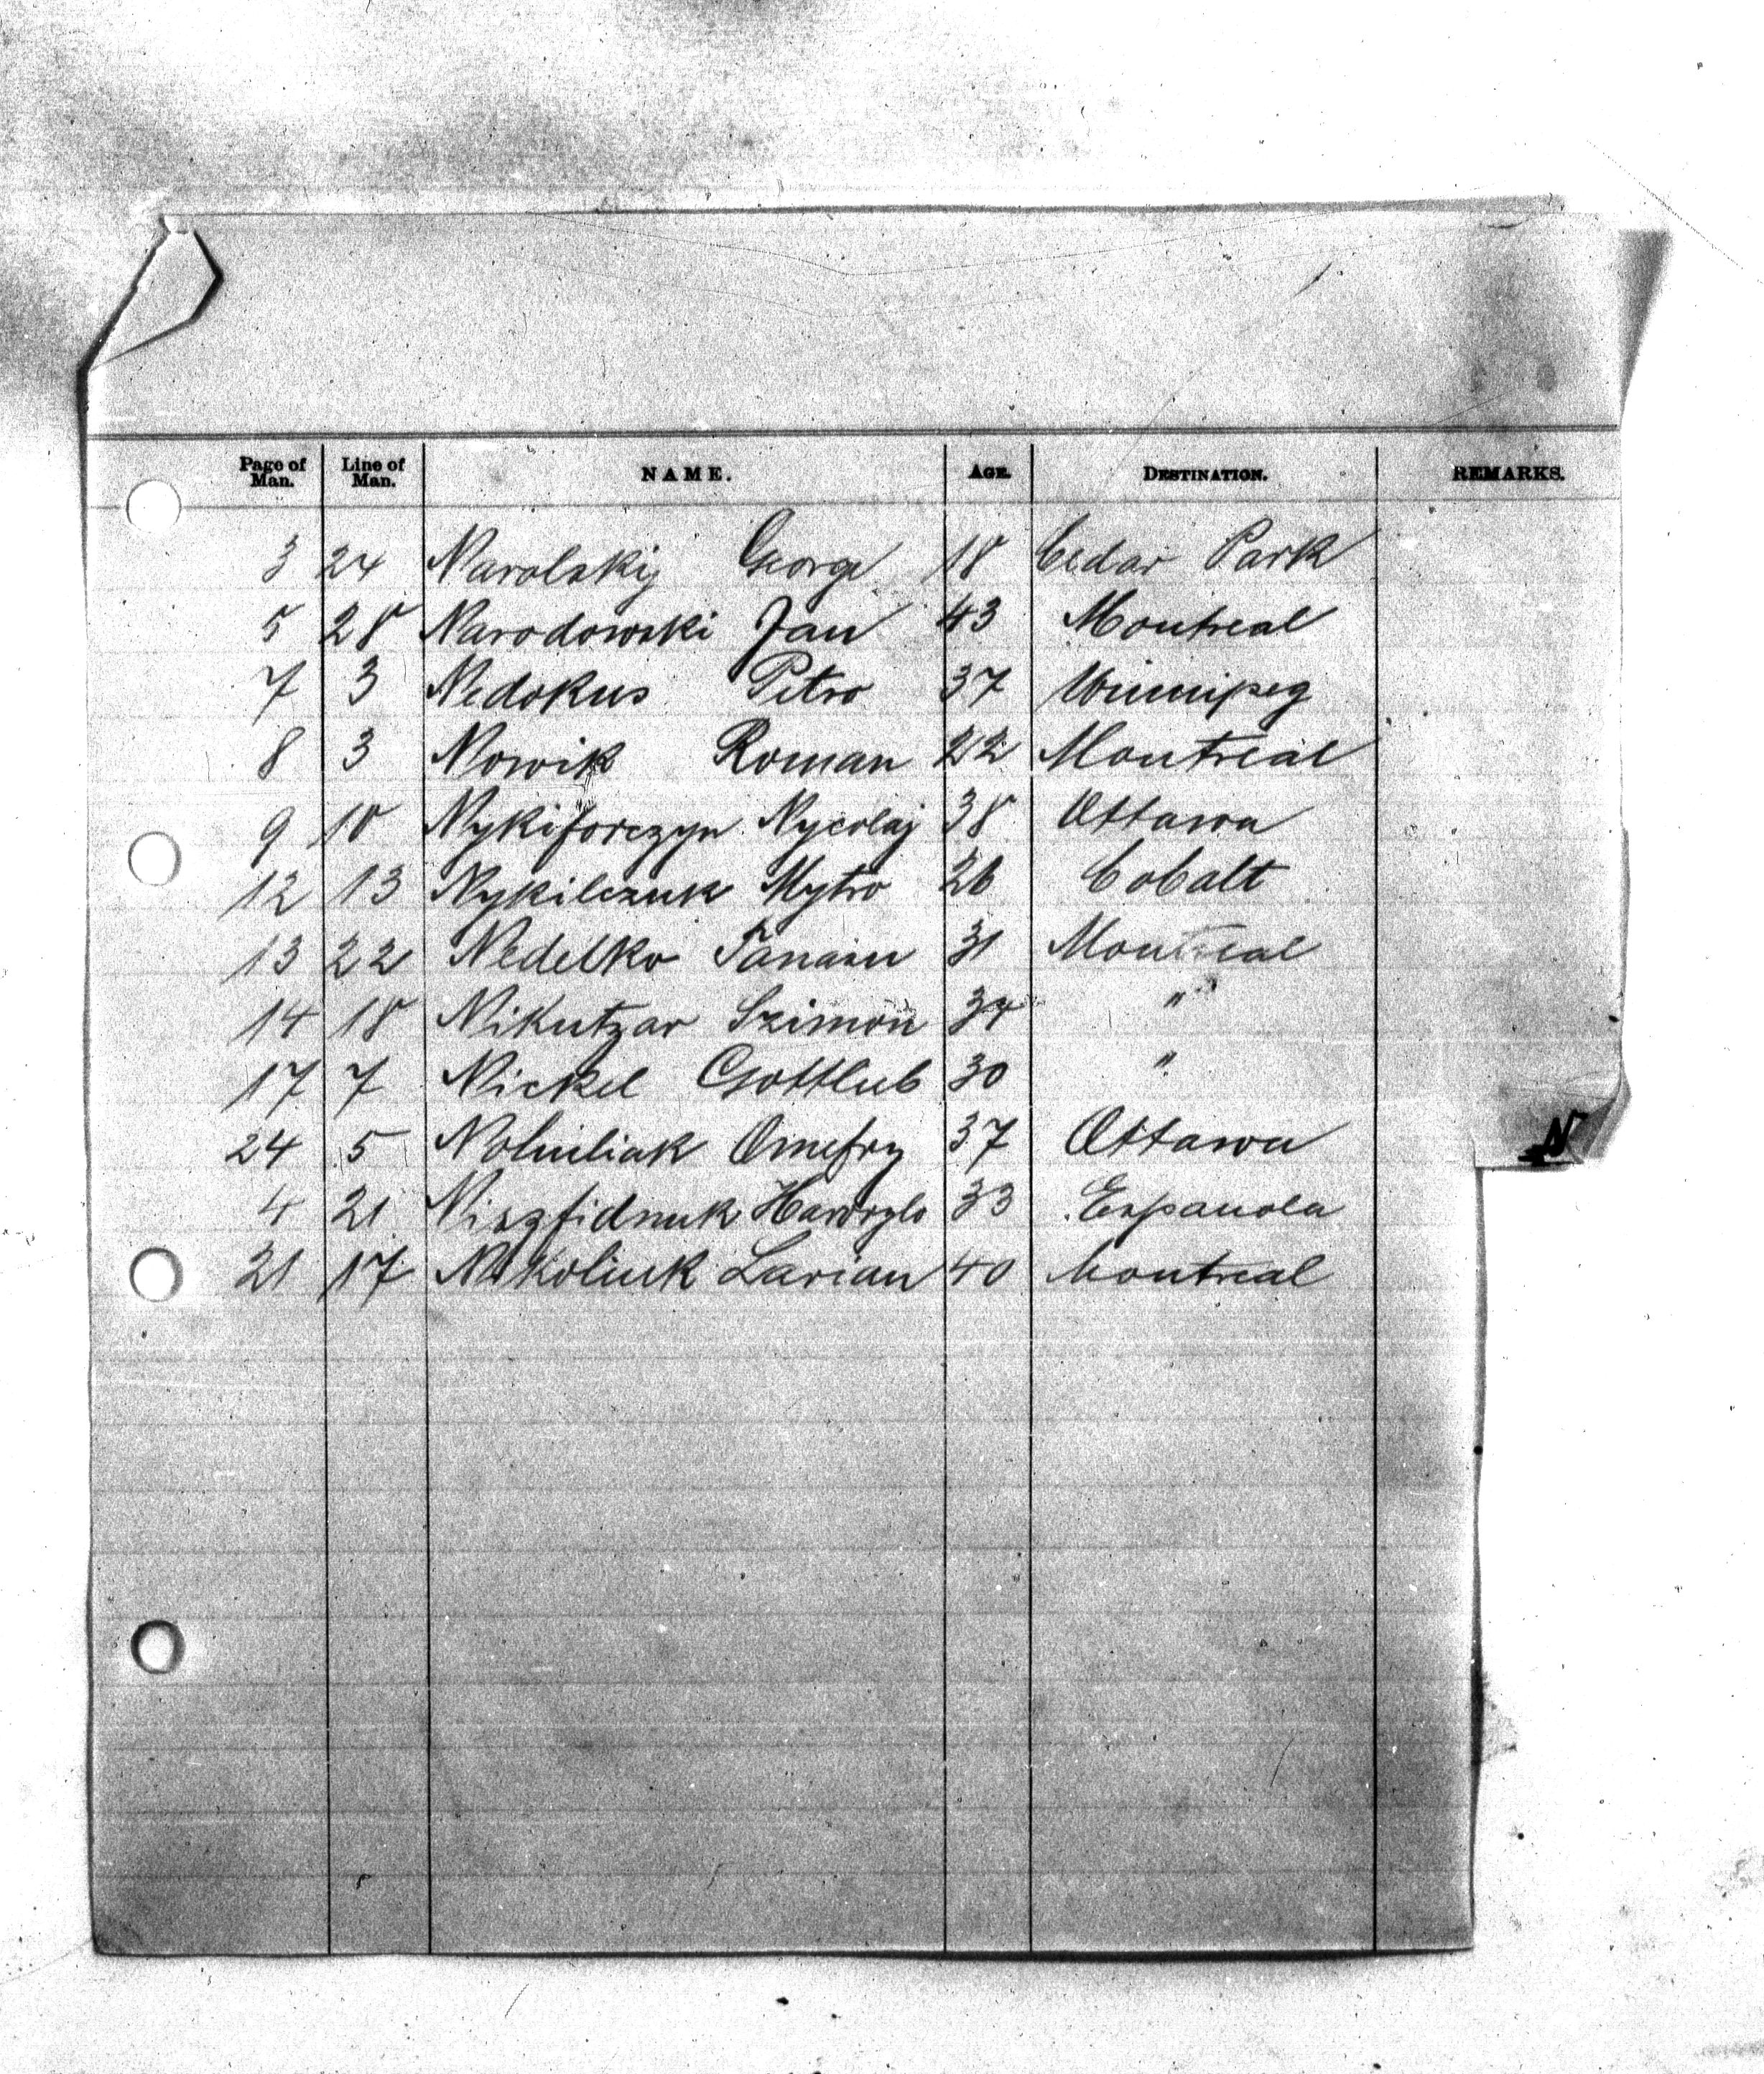 Page of Man. Line of Man. NAME. AGE. DESTINATION. REMARKS.
3 24 Narolskij George 18 Cedar Park
5 28 Narodowski Jan 43 Montreal
7 3 Nedokus Petro 37 Winnipeg
8 3 Nowik Roman 22 Montreal
9 10 Nykiforczyn Nycolaj 38 Ottawa
12 13 Nykilczuk Mytro 26 Cobalt
13 22 Nedelko Tanasu 31 Montreal
14 18 Nikutzar Szimon 34 "
17 7 Nickel Gottlieb 30 "
N
24 5 Ottawa 37
4 21 33 Espanola
21 17 Larian 40 Montreal